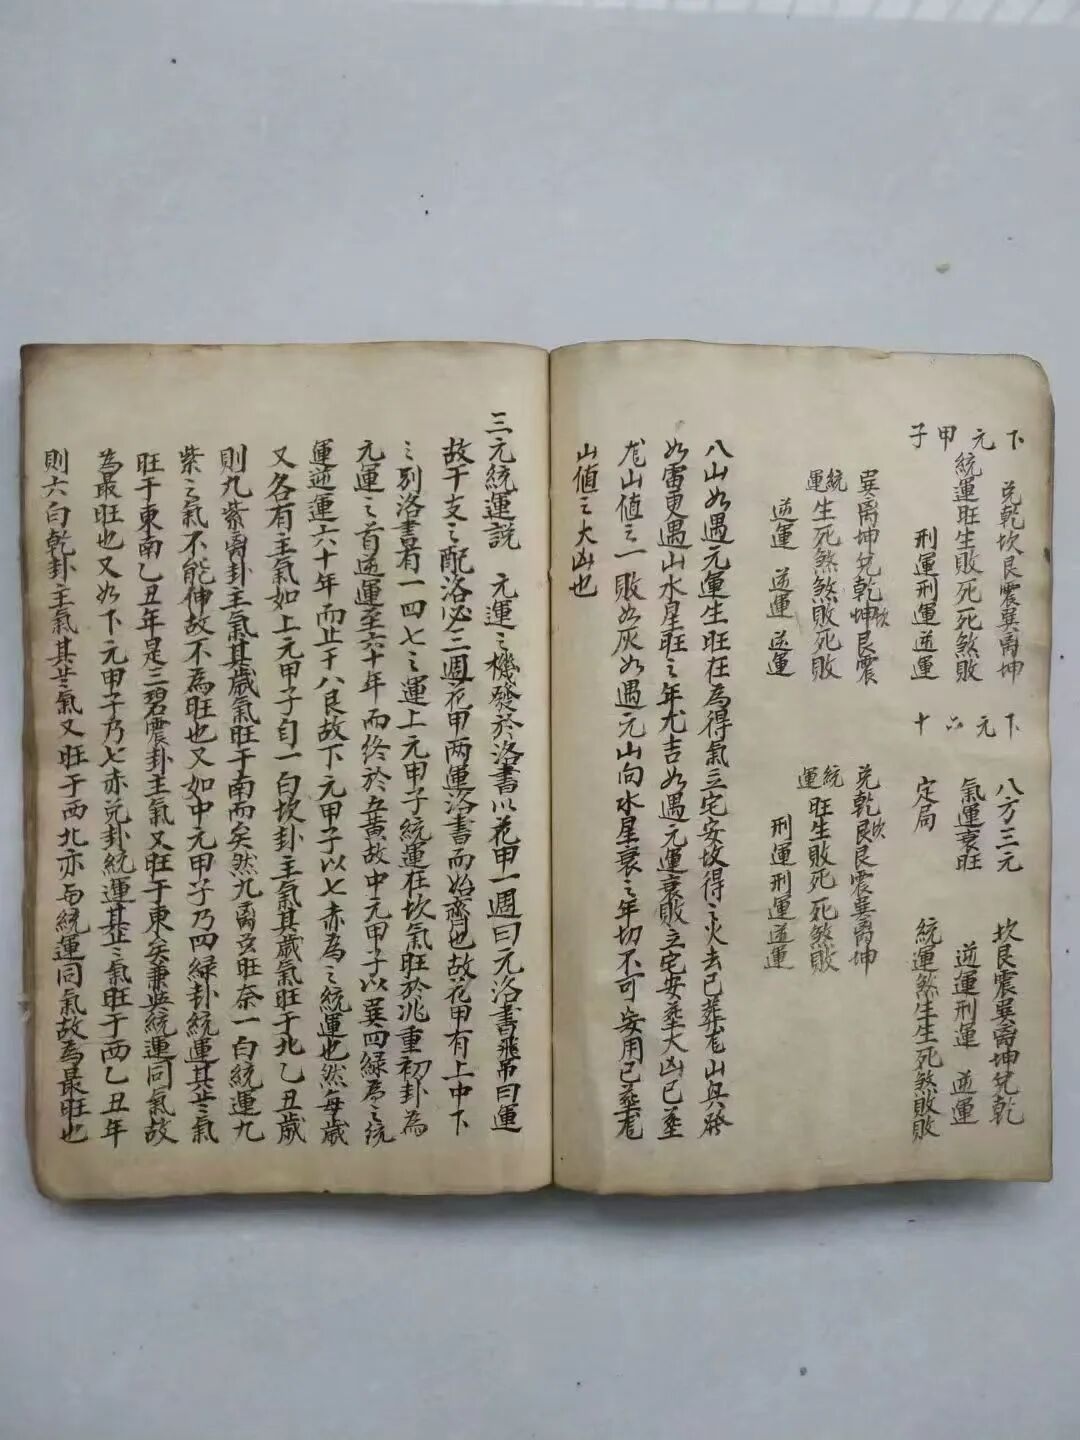 下元甲子
兌乾坎艮震巽离坤
統運旺生敗死死煞敗
刑運刑運逆運
巽离坤兌乾坎艮震
統運生死煞煞敗死敗
逆運 逆運 逆運
下元六十
八方三元
氣運衰旺
定局
兌乾坎艮震巽离坤
統運旺生敗死死煞敗
刑運刑運逆運
坎艮震巽离坤兌乾
逆運刑運 逆運
統運煞生生死煞敗敗
八山如遇元運生旺在為得氣立宅安坟得之火去已葬山與發
如雷更遇山水星旺之年尤吉如遇元運衰敗立宅安葬大凶已塟
山值之一敗如灰如遇元山向水星衰之年切不可安用已塟
山值之大凶也
三元統運説 元運之機發於洛書以花甲一週曰元洛書飛吊曰運
故干支之配洛必三週花甲两運洛書而始齊也故花甲有上中下
之别洛書有一四七之運上元甲子統運在坎氣旺於兆重初卦為
元運之首逆運至六十年而終於五黄故中元甲子以巽四緑為之統
運逆運六十年而止于八艮故下元甲子以七赤為之統運也然每歲
又各有主氣如上元甲子自一白坎卦主氣其歲氣旺于北乙丑歲
則九紫离卦主氣其歲氣旺于南而矣然九离亥旺奈一白統運九
紫之氣不能伸故不為旺也又如中元甲子乃四緑卦統運其岁氣
旺于東南乙丑年是三碧震卦主氣又旺于東矣兼與統運同氣故
為最旺也又如下元甲子乃七赤兑卦統運其岁氣旺于西乙丑年
則六白乾卦主氣其岁氣又旺于西北亦与統運同氣故為最旺也